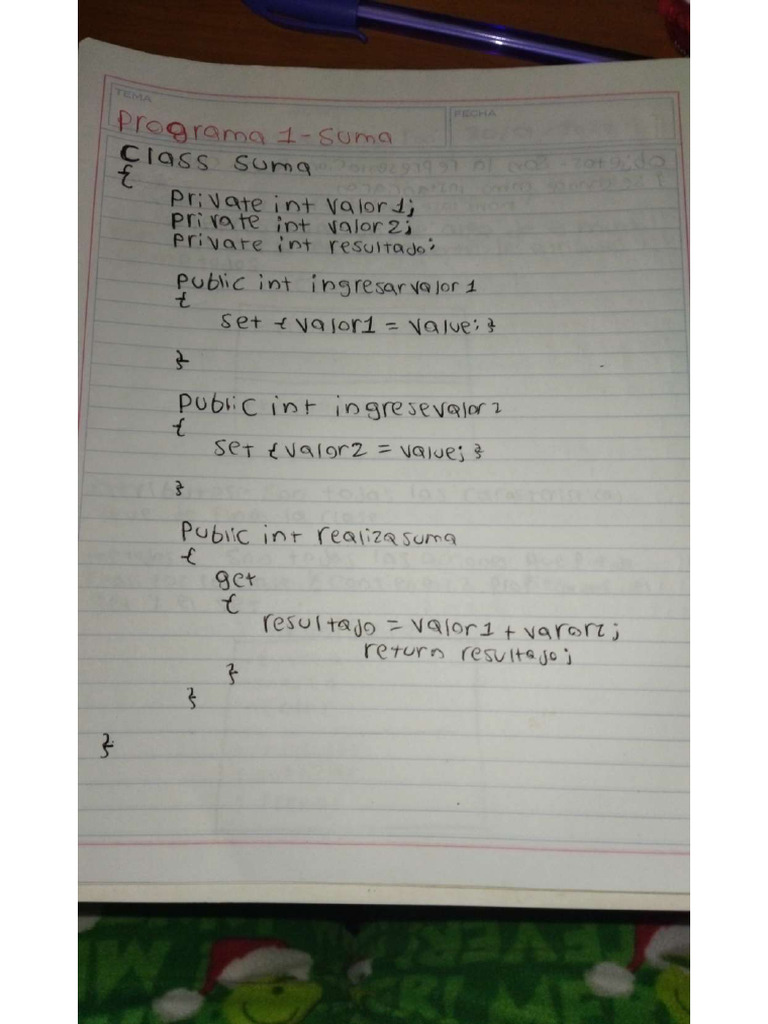 TEMA
FECHA
Programa 1 - Suma
Class Suma
{
private int valor1;
private int valor2;
private int resultado;
public int ingresarvalor1
{
set {valor1 = value; }
}
public int ingresevalor2
{
set {valor2 = value; }
}
Public int realizasuma
{
get
{
resultado = valor1 + varor2;
return resultado;
}
}
}